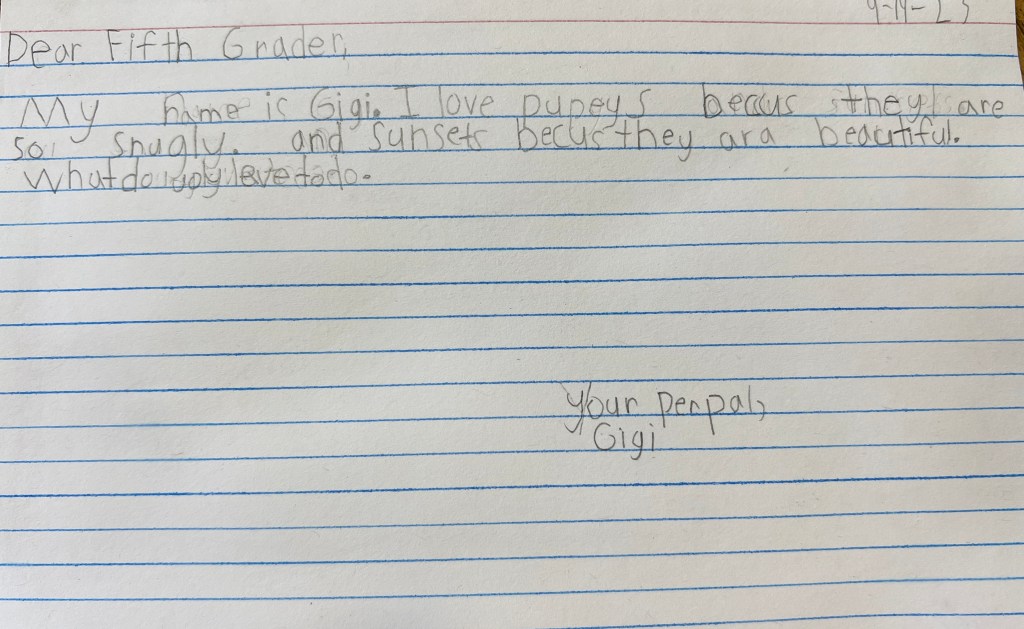 9-19-23
Dear Fifth Grader,
My name is Gigi. I love pupeys becaus they are
so snugly. and sunsets becus they ara beautiful.
What do love to do.
Your penpal,
Gigi